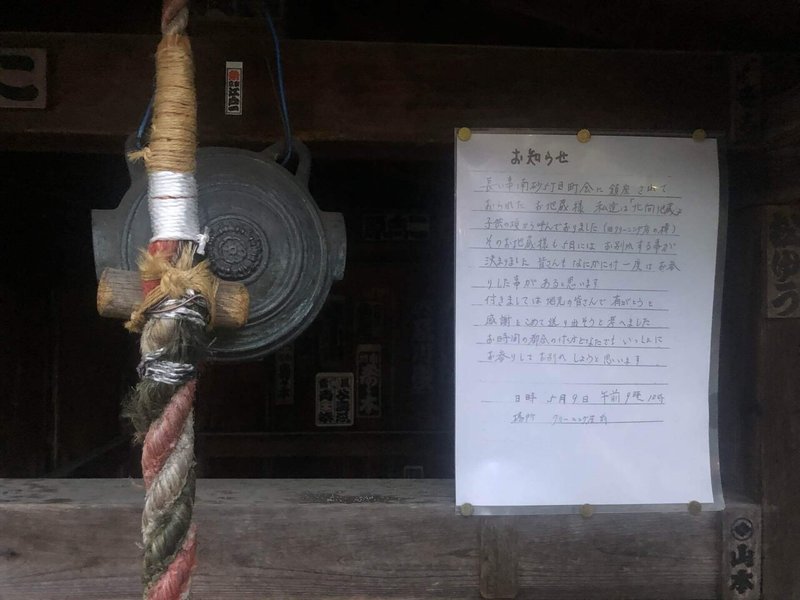 お知らせ
長い事南砂5丁目町会に鎮座されて
おられたお地蔵様 私達は「北向地蔵」と
子供の頃から呼んでおりました(旧クリーニング店の横)
そのお地蔵様も5月には お別れする事が
決まりました 皆さんもなにかに付一度はお参
りした事があると思います
付きましては地元の皆さんで有がとうと
感謝をこめて送り出そうと考へました
お時間の都合の付く方どなたでもいっしょに
お参りしてお別れしようと思います
日時 5月9日 午前9時
場所 クリーニング店前
山本